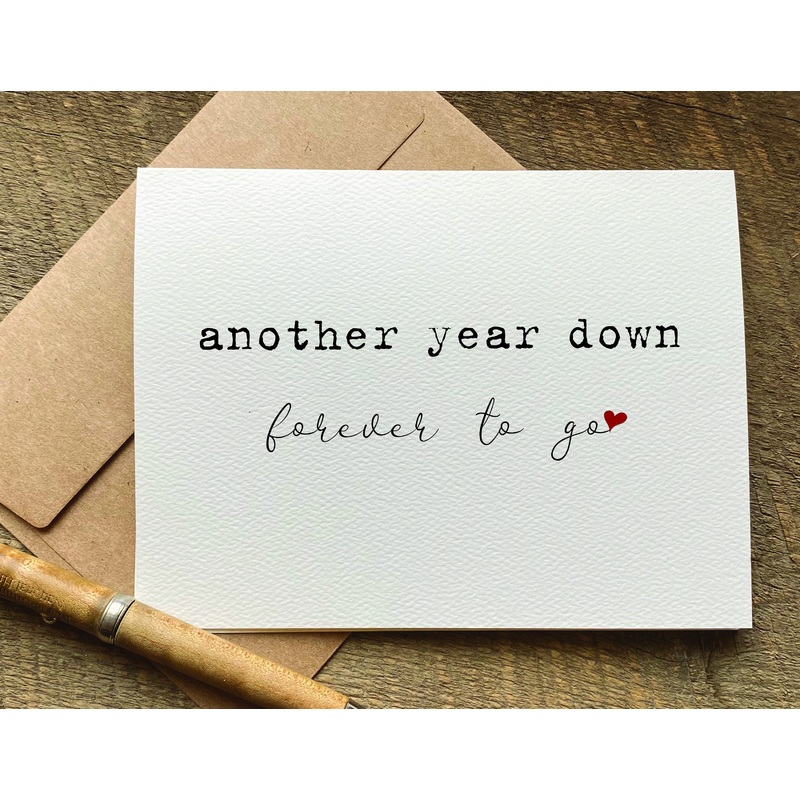 another year down
forever to go